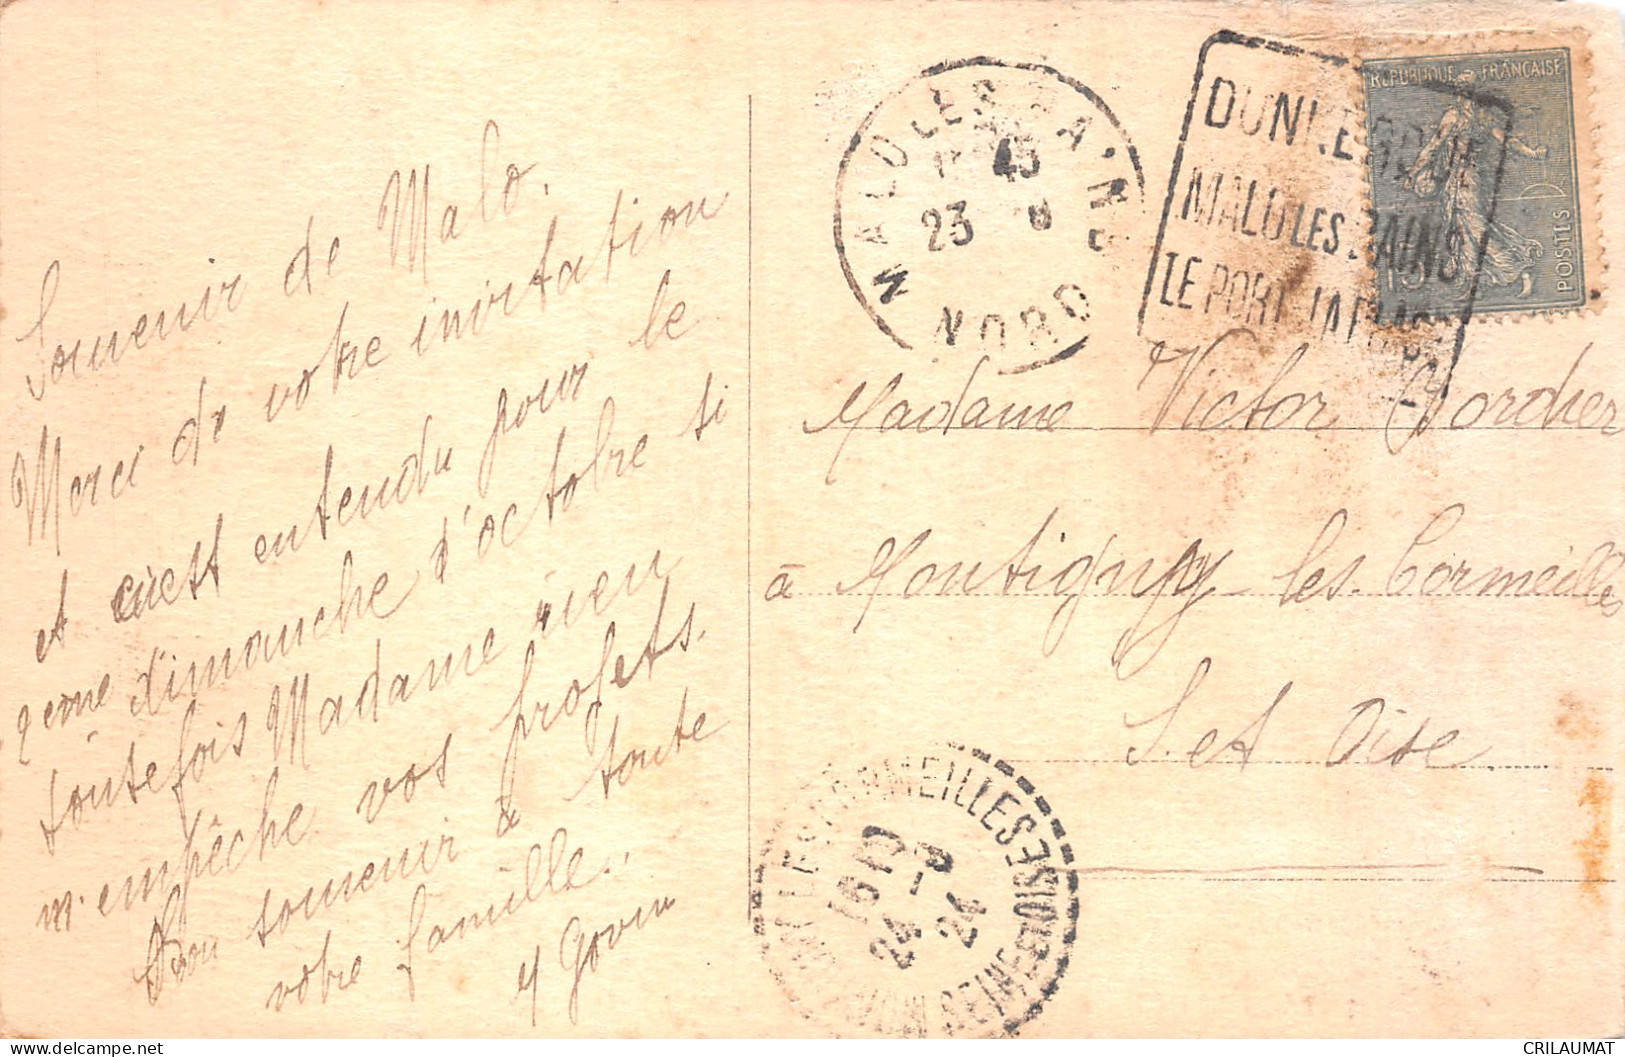 Souvenir de Malo.
Merci de votre invitation
et c'est entendu pour le
2eme dimanche d'octobre si
toutefois Madame rien
n'empêche vos projets.
Bon souvenir à toute
votre famille.
Y Govin
MALO LES BAINS
45
23 8
NORD
DUNKERQUE
MALO LES BAINS
LE PORT LA PLAGE
REPUBLIQUE FRANÇAISE
POSTES
15
Madame Victor Bordier
à Montigny les Cormeilles
S. et Oise
MONTIGNY LES CORMEILLES
16 10
24 - 9
24
SEINE ET OISE
CRILAUMAT